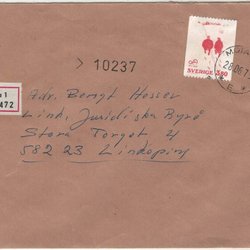 SVERIGE 380
> 10237
472
Adv. Bengt Hesser
Link. Juridiska Byrå
Stora Torget 4
582 23 Linköping